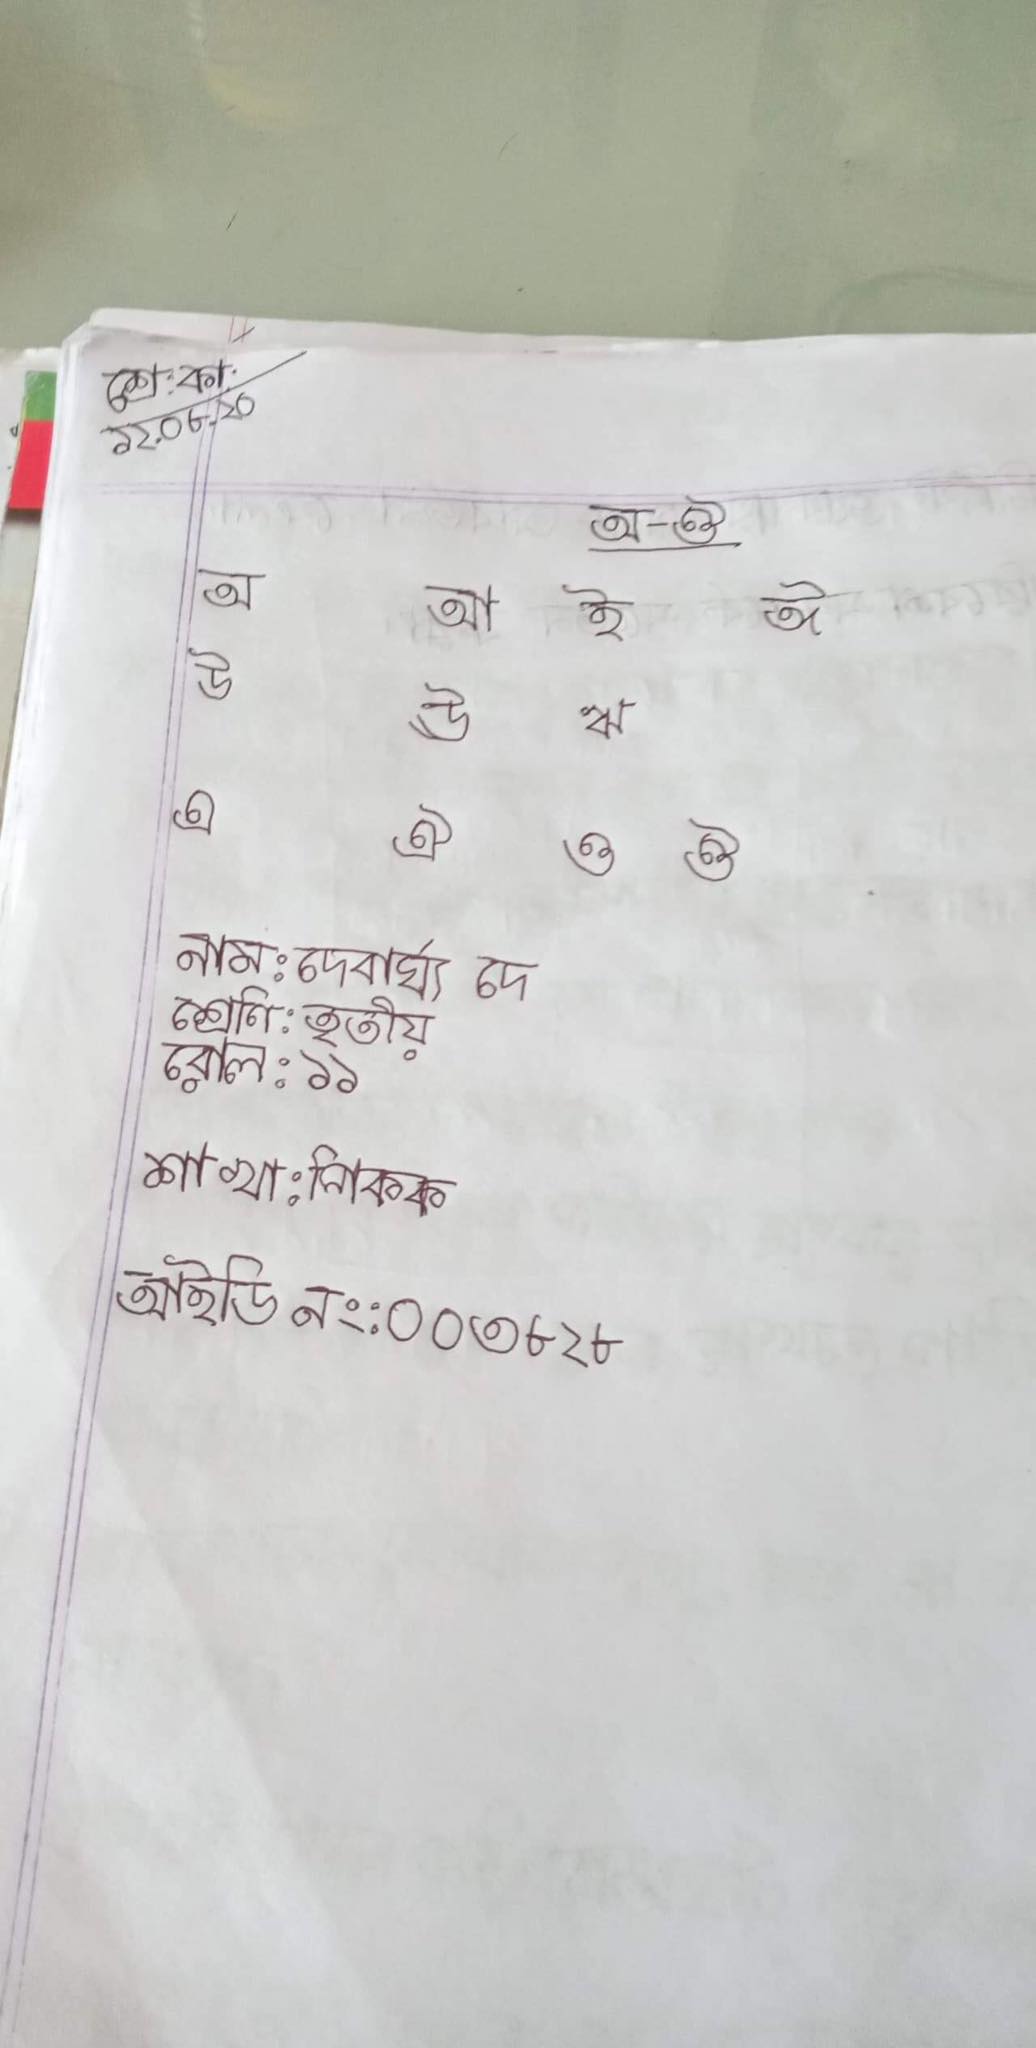 শ্রে:কা:
১২.০৮.২০
অ-ঔ
অ আ ই ঈ
উ ঊ ঋ
এ ঐ ও ঔ
নাম: দেবার্ঘ্য দে
শ্রেণি: তৃতীয়
রোল: ১১
শাখা:
আইডি নং: ০০৩৮২৮